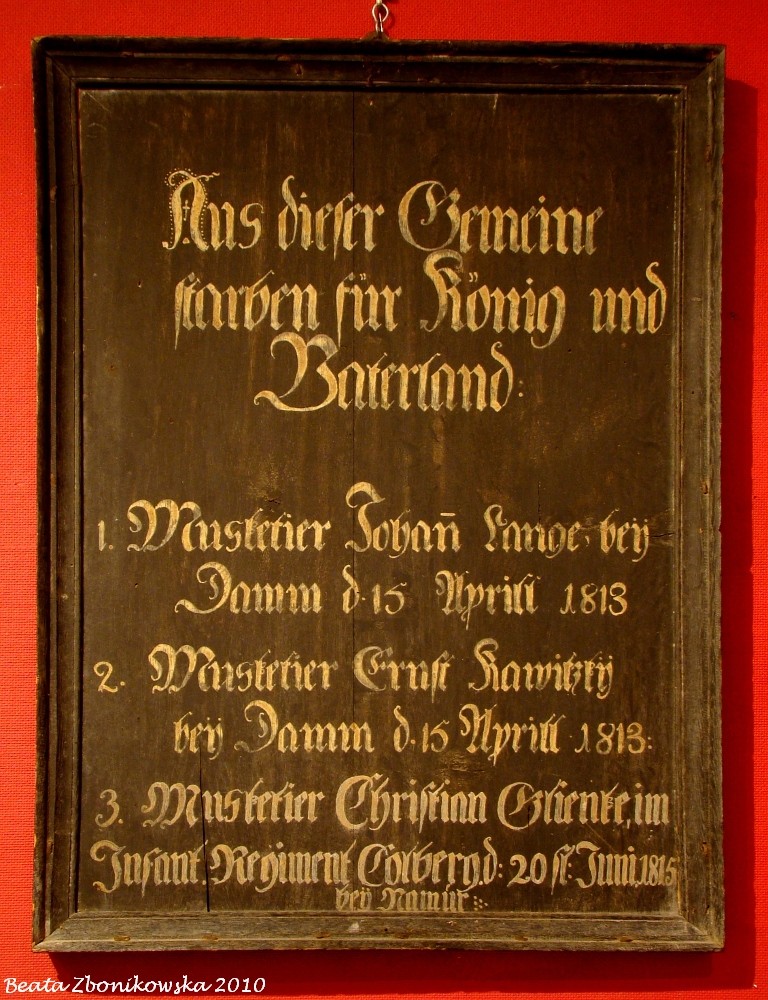 Aus dieser Gemeine
starben für König und
Vaterland:
1. Musketier Johan̄ Lange, bey
Damm d. 15 Aprill 1813
2. Musketier Ernst Kawitzky
bey Damm d. 15 Aprill 1813:
3. Musketier Christian Glienke, im
Infant Regiment Colberg, d: 20 st: Juni, 1815
bey Namur
Beata Zbonikowska 2010